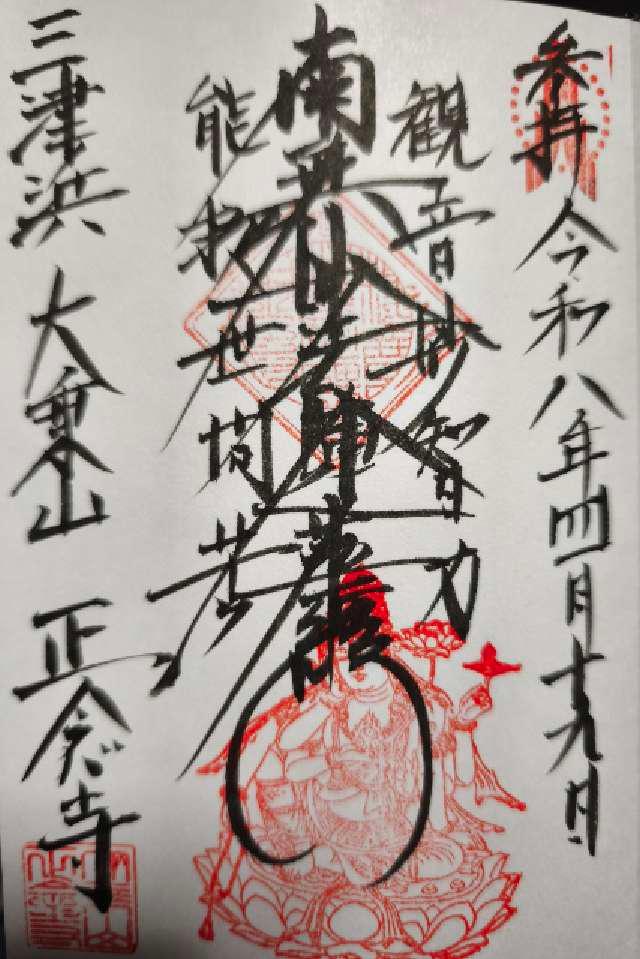 参拝 令和八年四月十九日
観音妙智力
南無妙法蓮華経
能救世間苦
三津浜 大乗山 正念寺